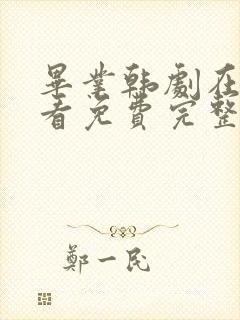 畢業韩劇在
看免費完整
鄭一民